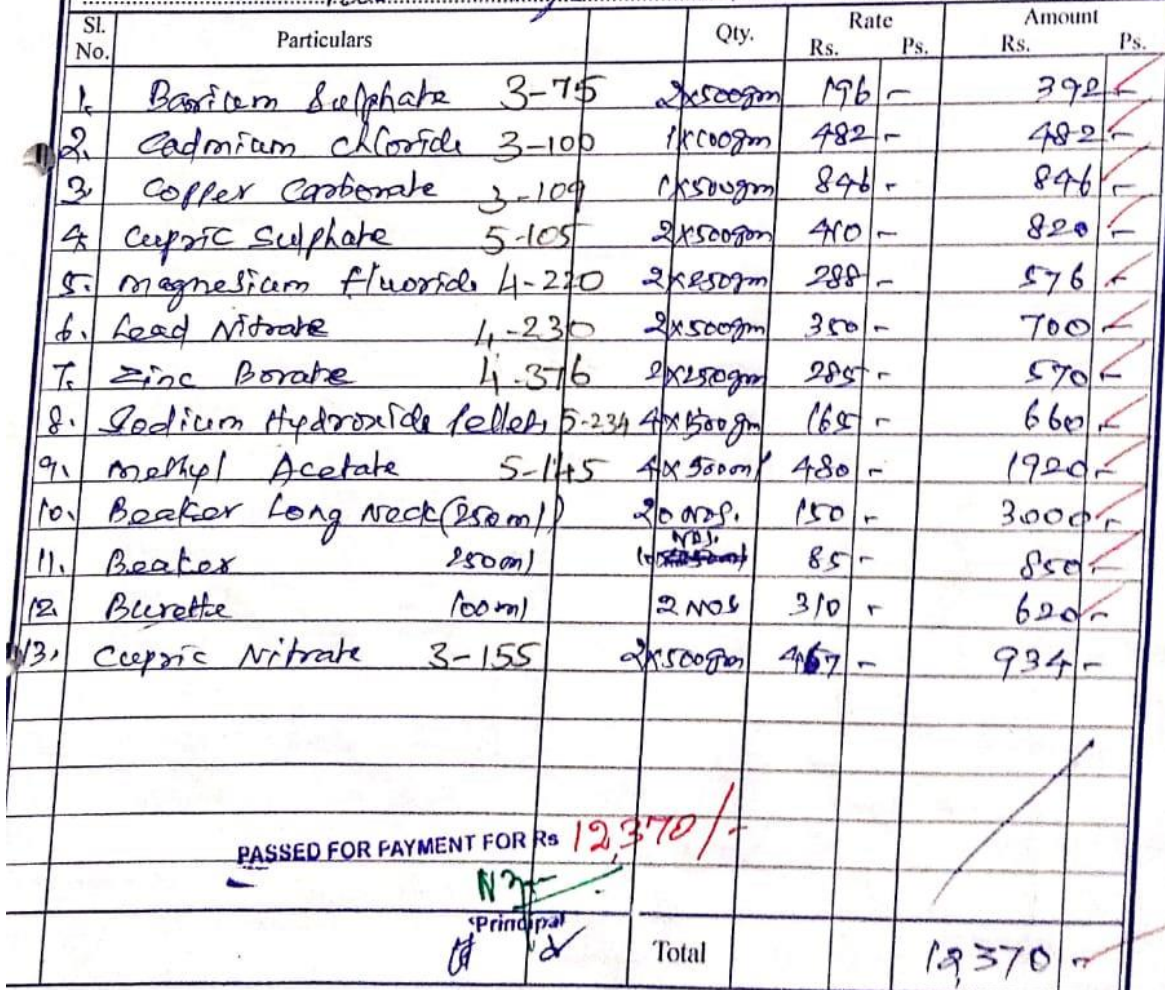 Sl. No. Particulars Qty. Rate Rs. Ps. Amount Rs. Ps.
1. Barium Sulphate 3-75 2x500gm 196 - 392 -
2. Cadmium chloride 3-100 1x100gm 482 - 482 -
3. Copper Carbonate 3-109 1x500gm 846 - 846 -
4. Cupric Sulphate 5-105 2x500gm 410 - 820 -
5. magnesium fluoride 4-220 2x250gm 288 - 576 -
6. Lead Nitrate 4-230 2x500gm 350 - 700 -
7. Zinc Borate 4-376 2x250gm 285 - 570 -
8. Sodium Hydroxide Pellets 5-234 4x500gm 165 - 660 -
9. methyl Acetate 5-145 4x500ml 480 - 1920 -
10. Beaker Long Neck (250ml) 20 NOS. 150 - 3000 -
11. Beaker 250ml 10 NOS. 85 - 850 -
12. Burette 100ml 2 NOS 310 - 620 -
13. Cupric Nitrate 3-155 2x500gm 467 - 934 -
PASSED FOR PAYMENT FOR Rs 12,370/-
Principal
Total 12,370 -